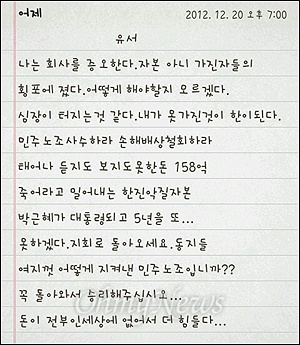 어제 2012. 12. 20 오후 7:00
유서
나는 회사를 증오한다.자본 아니 가진자들의
횡포에 졌다.어떻게 해야할지 모르겠다.
심장이 터지는것 같다.내가 못가진것이 한이된다.
민주노조사수하라 손해배상철회하라
태어나 듣지도 보지도못한돈 158억
죽어라고 밀어내는 한진악질자본
박근혜가 대통령되고 5년을 또...
못하겠다.지회로 돌아오세요.동지들
여지껏 어떻게 지켜낸 민주노조입니까??
꼭 돌아와서 승리해주십시오...
돈이 전부인세상에 없어서 더 힘들다...